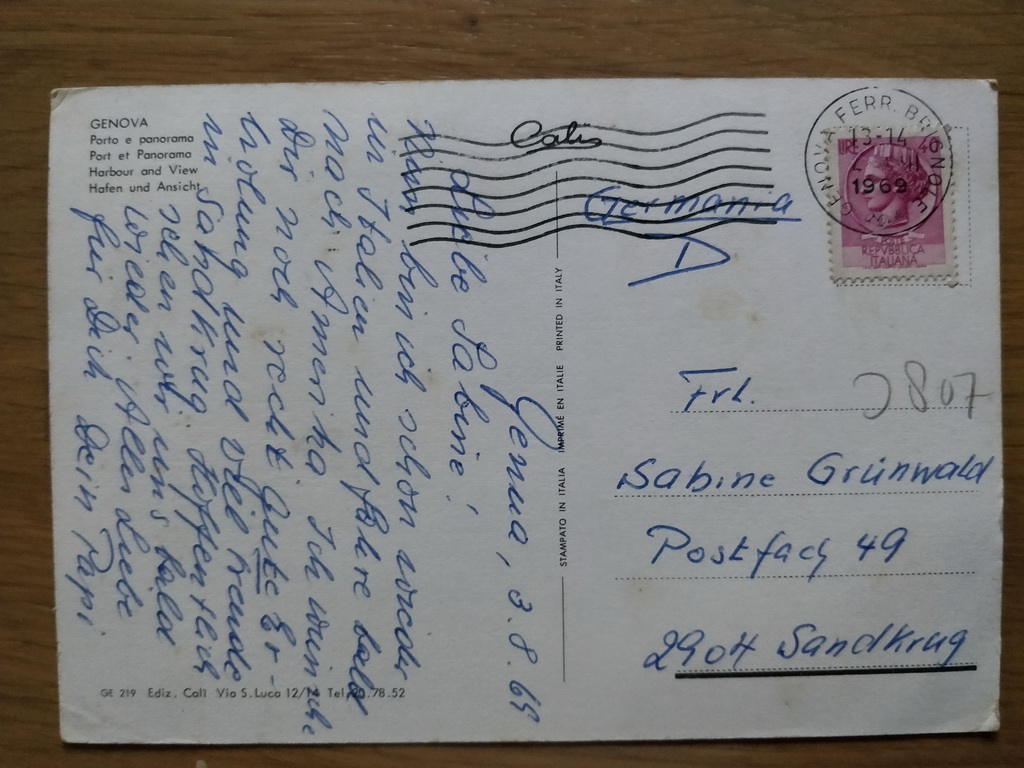 GENOVA
Porto e panorama
Port et Panorama
Harbour and View
Hafen und Ansicht
Genua, 3.8.69
Liebe Sabine!
Nun bin ich schon wieder
in Italien und fahre bald
nach Amerika. Ich wünsche
Dir noch recht gute Er-
holung und viel Freude
in Sandkrug. Hoffentlich
sehen wir uns bald
wieder. Alles Liebe
für Dich Dein Papi
GE 219 Ediz. Calì Via S. Luca 12/14 Tel. 20.78.52
STAMPATO IN ITALIA IMPRIMÉ EN ITALIE PRINTED IN ITALY
GENOVA FERR. BRIGNOLE
13-14
1969
LIRE 40
POSTE
REPVBBLICA
ITALIANA
Germania
D
Frl.
Sabine Grünwald
Postfach 49
2904 Sandkrug